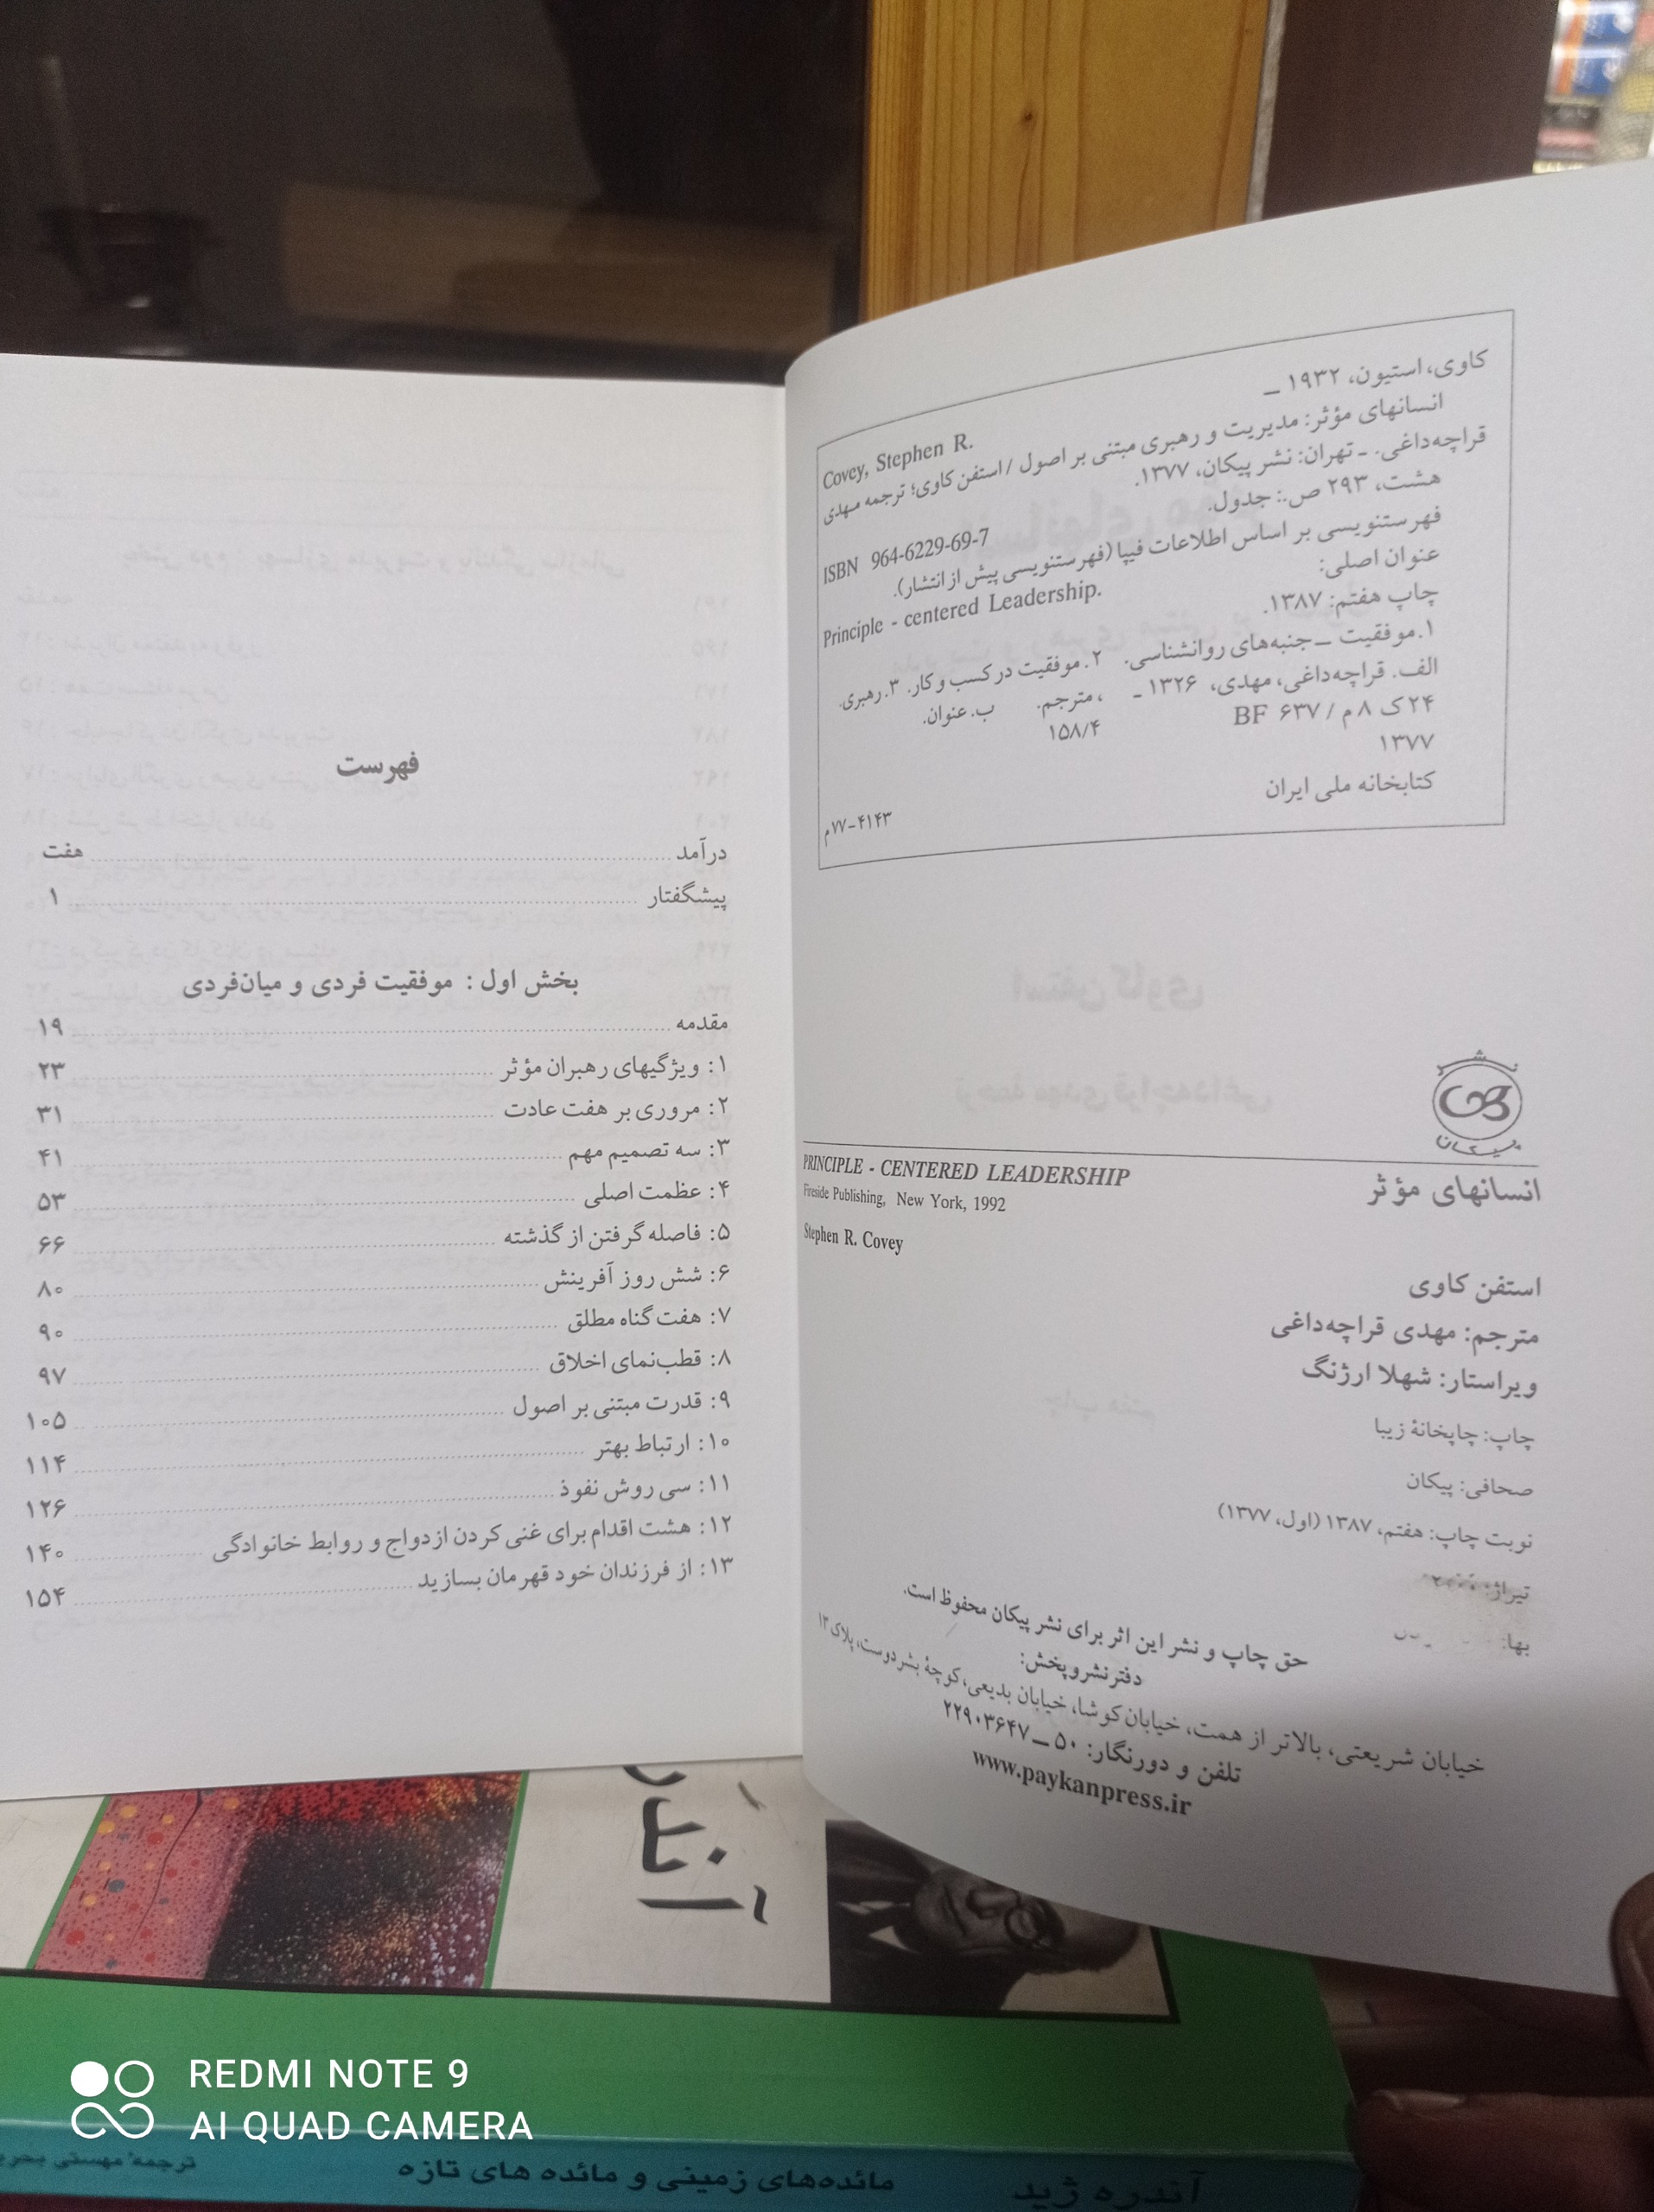 کاوی، استیون، ۱۹۳۲ ـ
Covey, Stephen R.
انسانهای مؤثر: مدیریت و رهبری مبتنی بر اصول / استفن کاوی؛ ترجمه مهدی
قراچه‌داغی. ـ تهران: نشر پیکان، ۱۳۷۷.
هشت، ۲۹۳ ص.: جدول.
ISBN 964-6229-69-7
فهرستنویسی بر اساس اطلاعات فیپا (فهرستنویسی پیش از انتشار).
عنوان اصلی:
Principle - centered Leadership.
چاپ هفتم: ۱۳۸۷.
۱. موفقیت ــ جنبه‌های روانشناسی. ۲. موفقیت در کسب و کار. ۳. رهبری.
الف. قراچه‌داغی، مهدی، ۱۳۲۶ ـ ، مترجم. ب. عنوان.
۲۴ک ۸م / ۶۳۷ BF ۱۵۸/۴
۱۳۷۷
کتابخانه ملی ایران
۴۱۴۳-۷۷م
نشر
پیکان
انسانهای مؤثر
PRINCIPLE - CENTERED LEADERSHIP
Fireside Publishing, New York, 1992
Stephen R. Covey
استفن کاوی
مترجم: مهدی قراچه‌داغی
ویراستار: شهلا ارژنگ
چاپ: چاپخانهٔ زیبا
صحافی: پیکان
نوبت چاپ: هفتم، ۱۳۸۷ (اول، ۱۳۷۷)
تیراژ:
بها:
حق چاپ و نشر این اثر برای نشر پیکان محفوظ است.
دفتر نشر و پخش:
خیابان شریعتی، بالاتر از همت، خیابان کوشا، خیابان بدیعی، کوچهٔ بشردوست، پلاک ۱۳
تلفن و دورنگار: ۵۰ ــ ۲۲۹۰۳۶۴۷
www.paykanpress.ir
فهرست
درآمد ........ هفت
پیشگفتار ........ ۱
بخش اول : موفقیت فردی و میان‌فردی
مقدمه ........ ۱۹
۱: ویژگیهای رهبران مؤثر ........ ۲۳
۲: مروری بر هفت عادت ........ ۳۱
۳: سه تصمیم مهم ........ ۴۱
۴: عظمت اصلی ........ ۵۳
۵: فاصله گرفتن از گذشته ........ ۶۶
۶: شش روز آفرینش ........ ۸۰
۷: هفت گناه مطلق ........ ۹۰
۸: قطب‌نمای اخلاق ........ ۹۷
۹: قدرت مبتنی بر اصول ........ ۱۰۵
۱۰: ارتباط بهتر ........ ۱۱۴
۱۱: سی روش نفوذ ........ ۱۲۶
۱۲: هشت اقدام برای غنی کردن ازدواج و روابط خانوادگی ........ ۱۴۰
۱۳: از فرزندان خود قهرمان بسازید ........ ۱۵۴
آندره ژید مائده‌های زمینی و مائده های تازه ترجمهٔ مهستی
REDMI NOTE 9
AI QUAD CAMERA